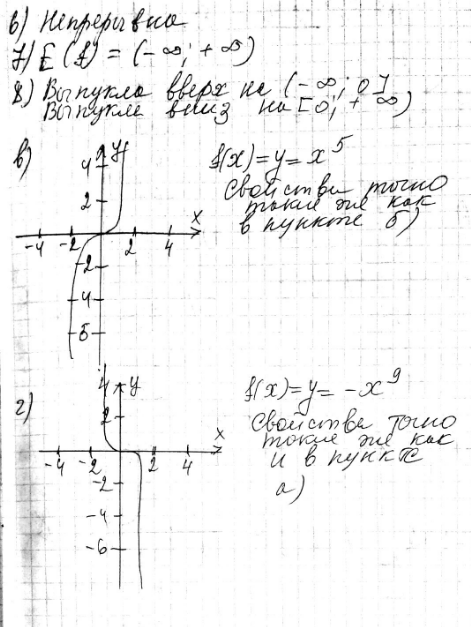 6) Непрерывна
7) E(f) = (-∞; +∞)
8) Выпукла вверх на (-∞; 0]
Выпукла вниз на [0; +∞)
в)
y
4
2
x
-4 -2 2 4
-2
-4
-5
f(x)=y=x⁵
Свойства точно
такие же как
в пункте б)
г)
4 y
2
x
-4 -2 2 4
-2
-4
-6
f(x)=y=-x⁹
Свойства точно
такие же как
и в пункте
а)